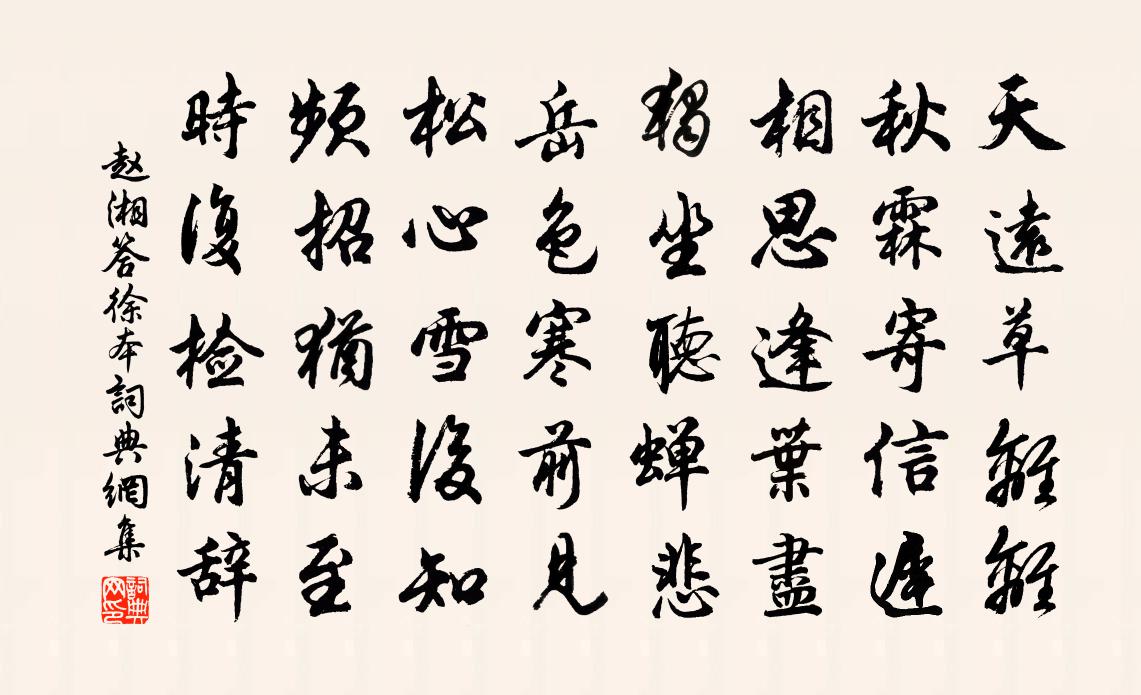 天遠草離離
秋霖寄信遲
相思逢葉盡
獨坐聽蝉悲
岳色寒前見
松心雪後知
頻招猶未至
時復檢清辞
赵湘答徐本詞典網集
詞典网印